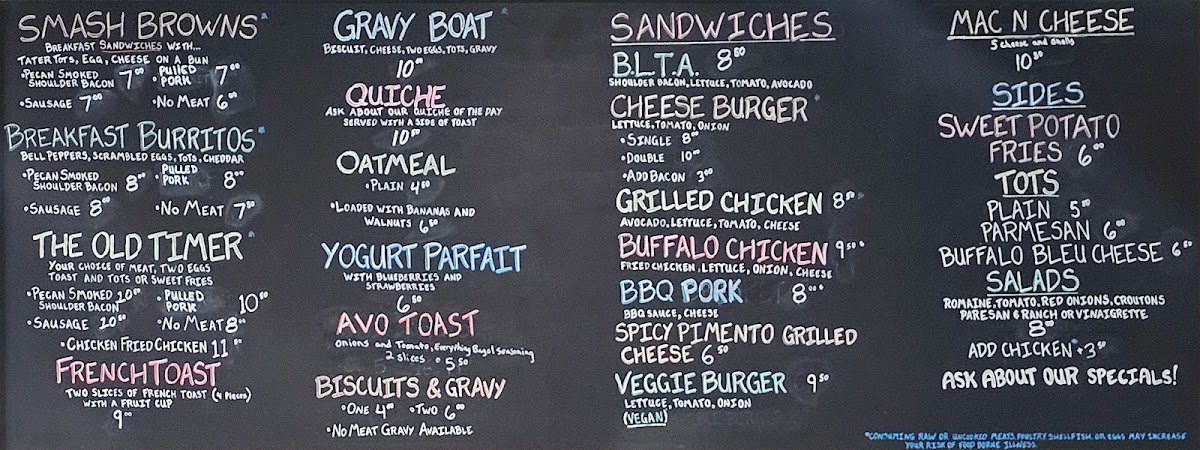 SMASH BROWNS
BREAKFAST SANDWICHES WITH...
TATER TOTS, EGG, CHEESE ON A BUN
•PECAN SMOKED SHOULDER BACON 7⁰⁰ •PULLED PORK 7⁰⁰
•SAUSAGE 7⁰⁰ •NO MEAT 6⁰⁰
BREAKFAST BURRITOS
BELL PEPPERS, SCRAMBLED EGGS, TOTS, CHEDDAR
•PECAN SMOKED SHOULDER BACON 8⁰⁰ •PULLED PORK 8⁰⁰
•SAUSAGE 8⁰⁰ •NO MEAT 7⁵⁰
THE OLD TIMER
YOUR CHOICE OF MEAT, TWO EGGS
TOAST AND TOTS OR SWEET FRIES
•PECAN SMOKED SHOULDER BACON 10⁵⁰ •PULLED PORK 10⁵⁰
•SAUSAGE 10⁵⁰ •NO MEAT 8⁰⁰
•CHICKEN FRIED CHICKEN 11
FRENCH TOAST
TWO SLICES OF FRENCH TOAST (4 PIECES)
WITH A FRUIT CUP
9⁰⁰
GRAVY BOAT
BISCUIT, CHEESE, TWO EGGS, TOTS, GRAVY
10⁰⁰
QUICHE
ASK ABOUT OUR QUICHE OF THE DAY
SERVED WITH A SIDE OF TOAST
10⁵⁰
OATMEAL
•PLAIN 4⁵⁰
•LOADED WITH BANANAS AND
WALNUTS 6⁵⁰
YOGURT PARFAIT
WITH BLUEBERRIES AND
STRAWBERRIES
6⁵⁰
AVO TOAST
onions and Tomato, Everything Bagel Seasoning
2 slices • 5.50
BISCUITS & GRAVY
•ONE 4⁰⁰ •TWO 6⁰⁰
•NO MEAT GRAVY AVAILABLE
SANDWICHES
B.L.T.A. 8⁵⁰
SHOULDER BACON, LETTUCE, TOMATO, AVOCADO
CHEESE BURGER*
LETTUCE, TOMATO, ONION
•SINGLE 8⁰⁰
•DOUBLE 10⁰⁰
•ADD BACON 3⁰⁰
GRILLED CHICKEN 8⁵⁰
AVOCADO, LETTUCE, TOMATO, CHEESE
BUFFALO CHICKEN 9⁵⁰
FRIED CHICKEN, LETTUCE, ONION, CHEESE
BBQ PORK 8⁰⁰
BBQ SAUCE, CHEESE
SPICY PIMENTO GRILLED
CHEESE 6⁵⁰
VEGGIE BURGER 9⁵⁰
LETTUCE, TOMATO, ONION
(VEGAN)
MAC N CHEESE
5 cheese and shells
10⁵⁰
SIDES
SWEET POTATO
FRIES 6⁰⁰
TOTS
PLAIN 5⁰⁰
PARMESAN 6⁰⁰
BUFFALO BLEU CHEESE 6⁵⁰
SALADS
ROMAINE, TOMATO, RED ONIONS, CROUTONS
PARESAN & RANCH OR VINAIGRETTE
8⁰⁰
ADD CHICKEN*•3⁵⁰
ASK ABOUT OUR SPECIALS!
*CONSUMING RAW OR UNCOOKED MEATS, POULTRY, SHELLFISH, OR EGGS MAY INCREASE
YOUR RISK OF FOOD BORNE ILLNESS.